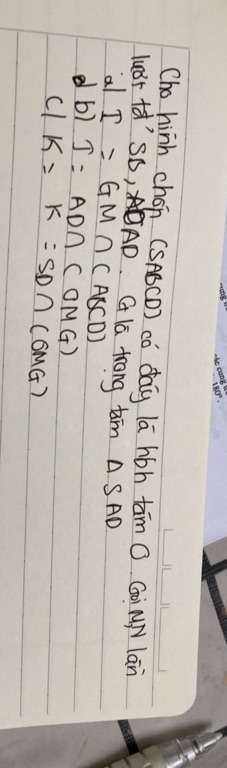 Cho hình chóp (SABCD) có đáy là hbh tâm O. Gọi M,N lần
lượt tđ' SB, AD. G là trọng tâm Δ SAD
a) I = GM ∩ (ABCD)
b) J = AD ∩ (OMG)
c) K = K = SD ∩ (OMG)
180°.